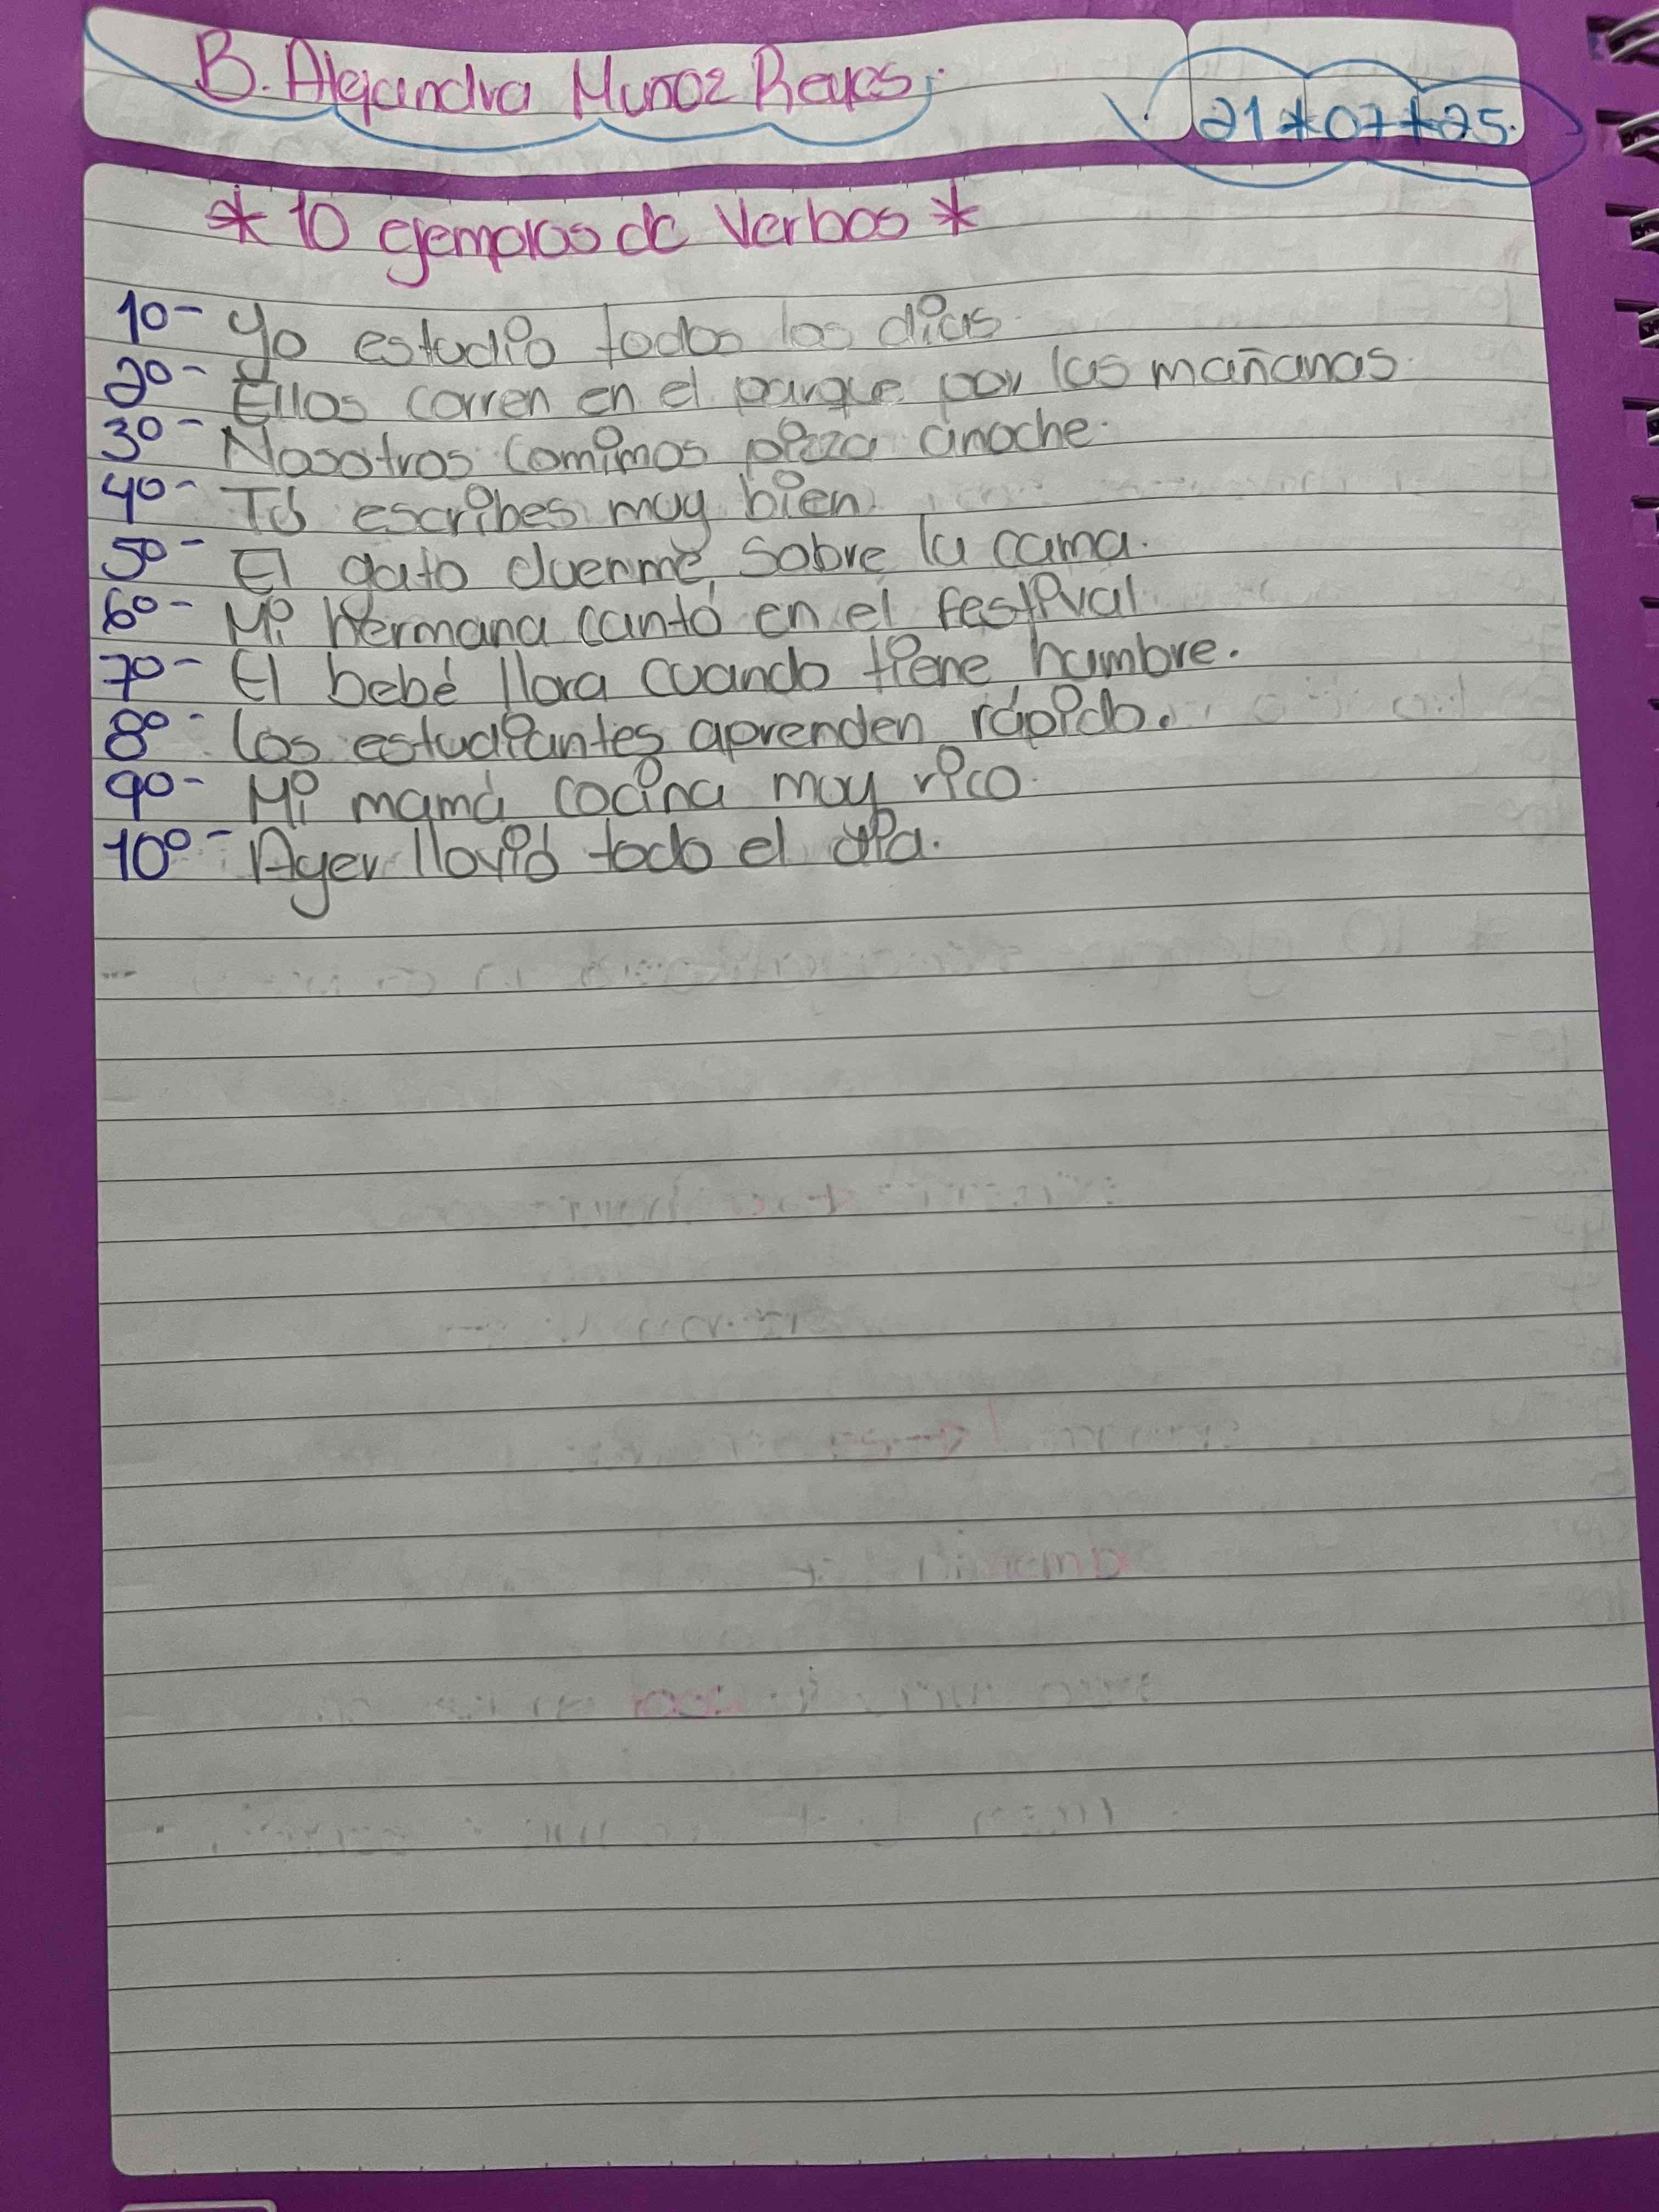 B. Alejandra Muñoz Reyes.
21*07*25.
* 10 ejemplos de Verbos *
1o- Yo estudio todos los dias.
2o- Ellos corren en el parque por las mañanas.
3o- Nosotros comimos pizza anoche.
4o- Tú escribes muy bien.
5o- El gato duerme sobre la cama.
6o- Mi hermana cantó en el festival.
7o- El bebé llora cuando tiene hambre.
8o- Los estudiantes aprenden rápido.
9o- Mi mamá cocina muy rico.
10o- Ayer llovió todo el día.